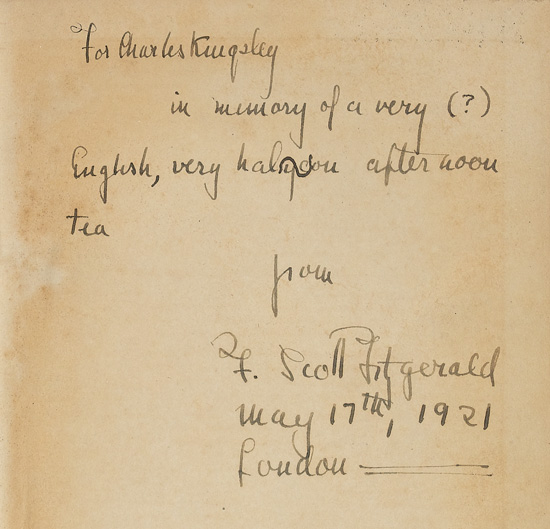 For Charles Kingsley
in memory of a very (?)
English, very halycon afternoon
tea
from
F. Scott Fitzgerald
May 17th, 1921
London